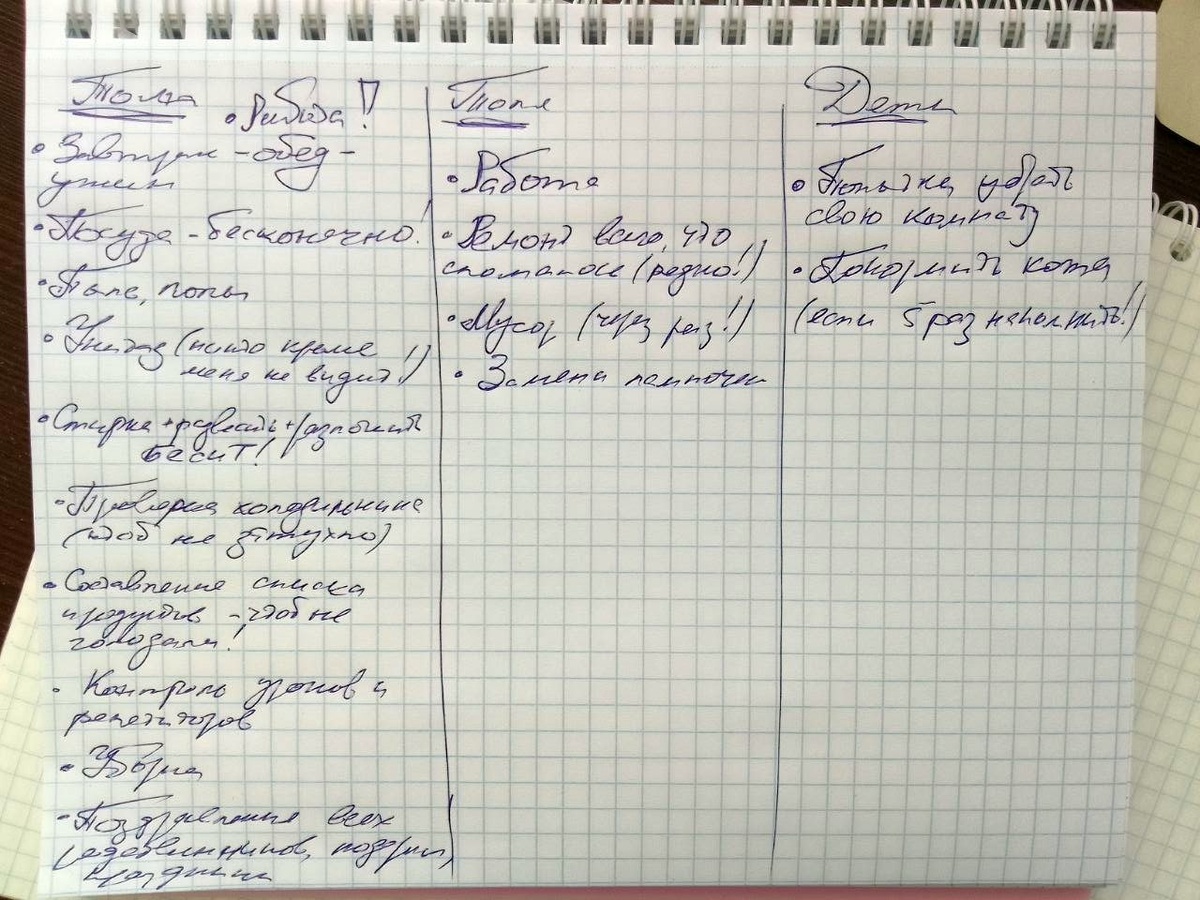 • Работа!
• Завтрак - обед -
ужин
• Посуда - бесконечно!
• Пыль, полы
• Унитаз (никто кроме
меня не видит!)
• Стирка + развесить + разложить
бесит!
• Проверка холодильника
(чтоб не стухло)
• Составление списка
продуктов - чтоб не
голодали!
• Контроль уроков и
репетиторов
• Уборка
• Поздравление всех
родственников, подарки,
праздники
Толя
• Работа
• Ремонт всего, что
сломалось (редко!)
• Мусор (через раз!)
• Замена лампочки
Дети
• Попытка убрать
свою комнату
• Покормить кота
(если 5 раз напомнить!)